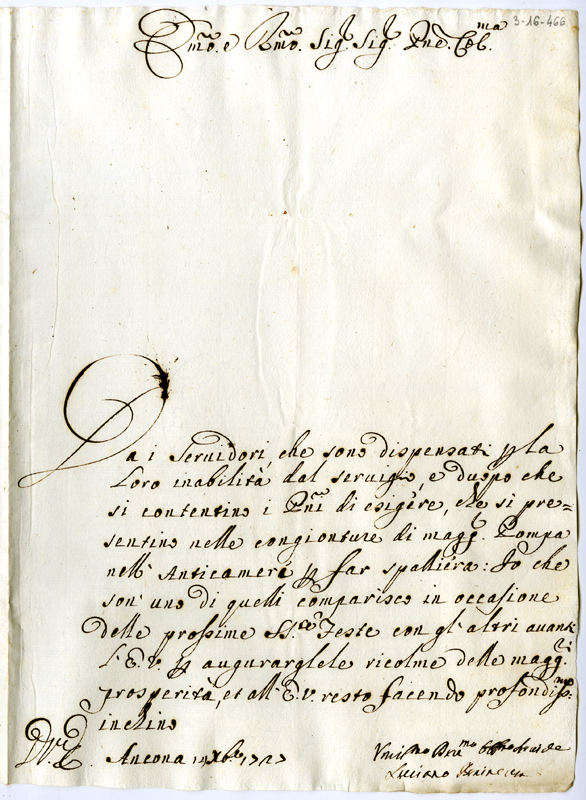 3-16-466
Emo. e Rmo. Sig. Sig. Pne. Col.ma
Da i Seruidori, che sono dispensati p la
Loro inabilità dal seruigio, e duopo che
si contentino i Pni di esigere, che si pre=
sentino nelle congionture di magg. Pompa
nell' Anticamere p far spalliera: Io che
son' uno di quelli comparisco in occasione
delle prossime SS.e Feste con gl'altri auanti
l'E.V. p augurarglele ricolme delle magg.ri
prosperità, et all'E.V. resto facendo profondiss.mo
inchino
Ancona Xbre 1727
Luciano Benincasa